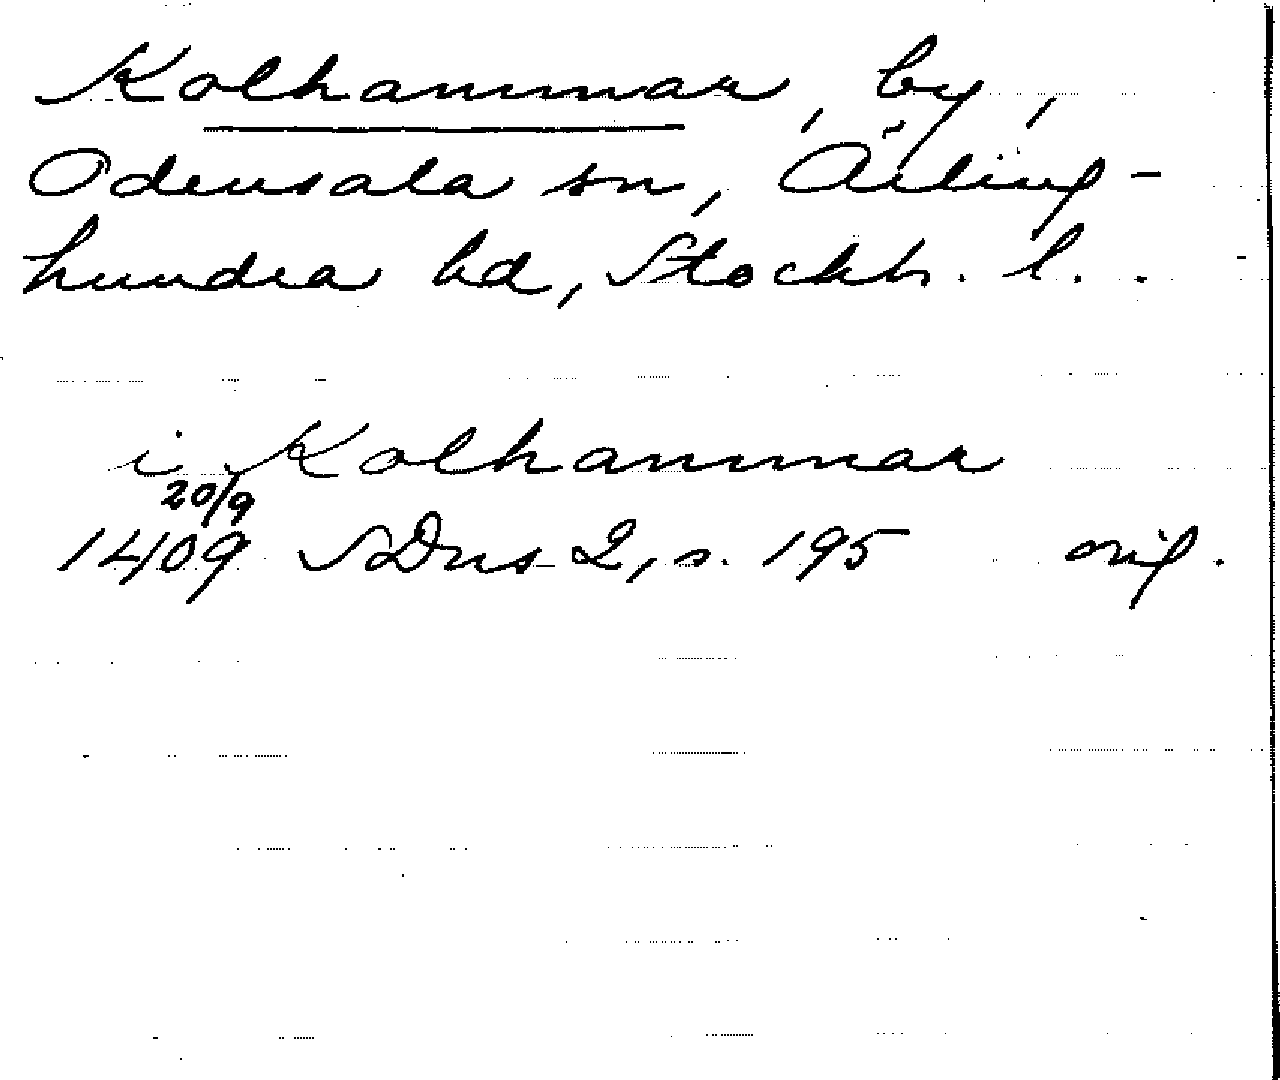 Kolhammar, by,
Odensala sn, Ärling-
hundra hd, Stockh. l.
i Kolhammar
20/9
1409 SDns 2, s. 195 orig.